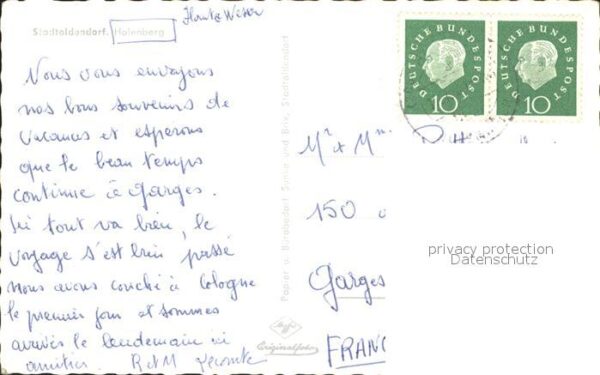 Haute Weser
Stadtoldendorf. Holenberg
DEUTSCHE BUNDESPOST
10
DEUTSCHE BUNDESPOST
10
Nous vous envoyons
nos bons souvenirs de
vacances et esperons
que le beau temps
continue à Garges.
Ici tout va bien, le
voyage s'est bien passé
nous avons couché à Cologne
le premier jour et sommes
arrivés le lendemain ici
amitiés. R et M Lecomte
Papier u. Bürobedarf Stadtoldendorf
Agfa
Originalfoto
Mr + Mme
150
Garges
FRANC
privacy protection
Datenschutz